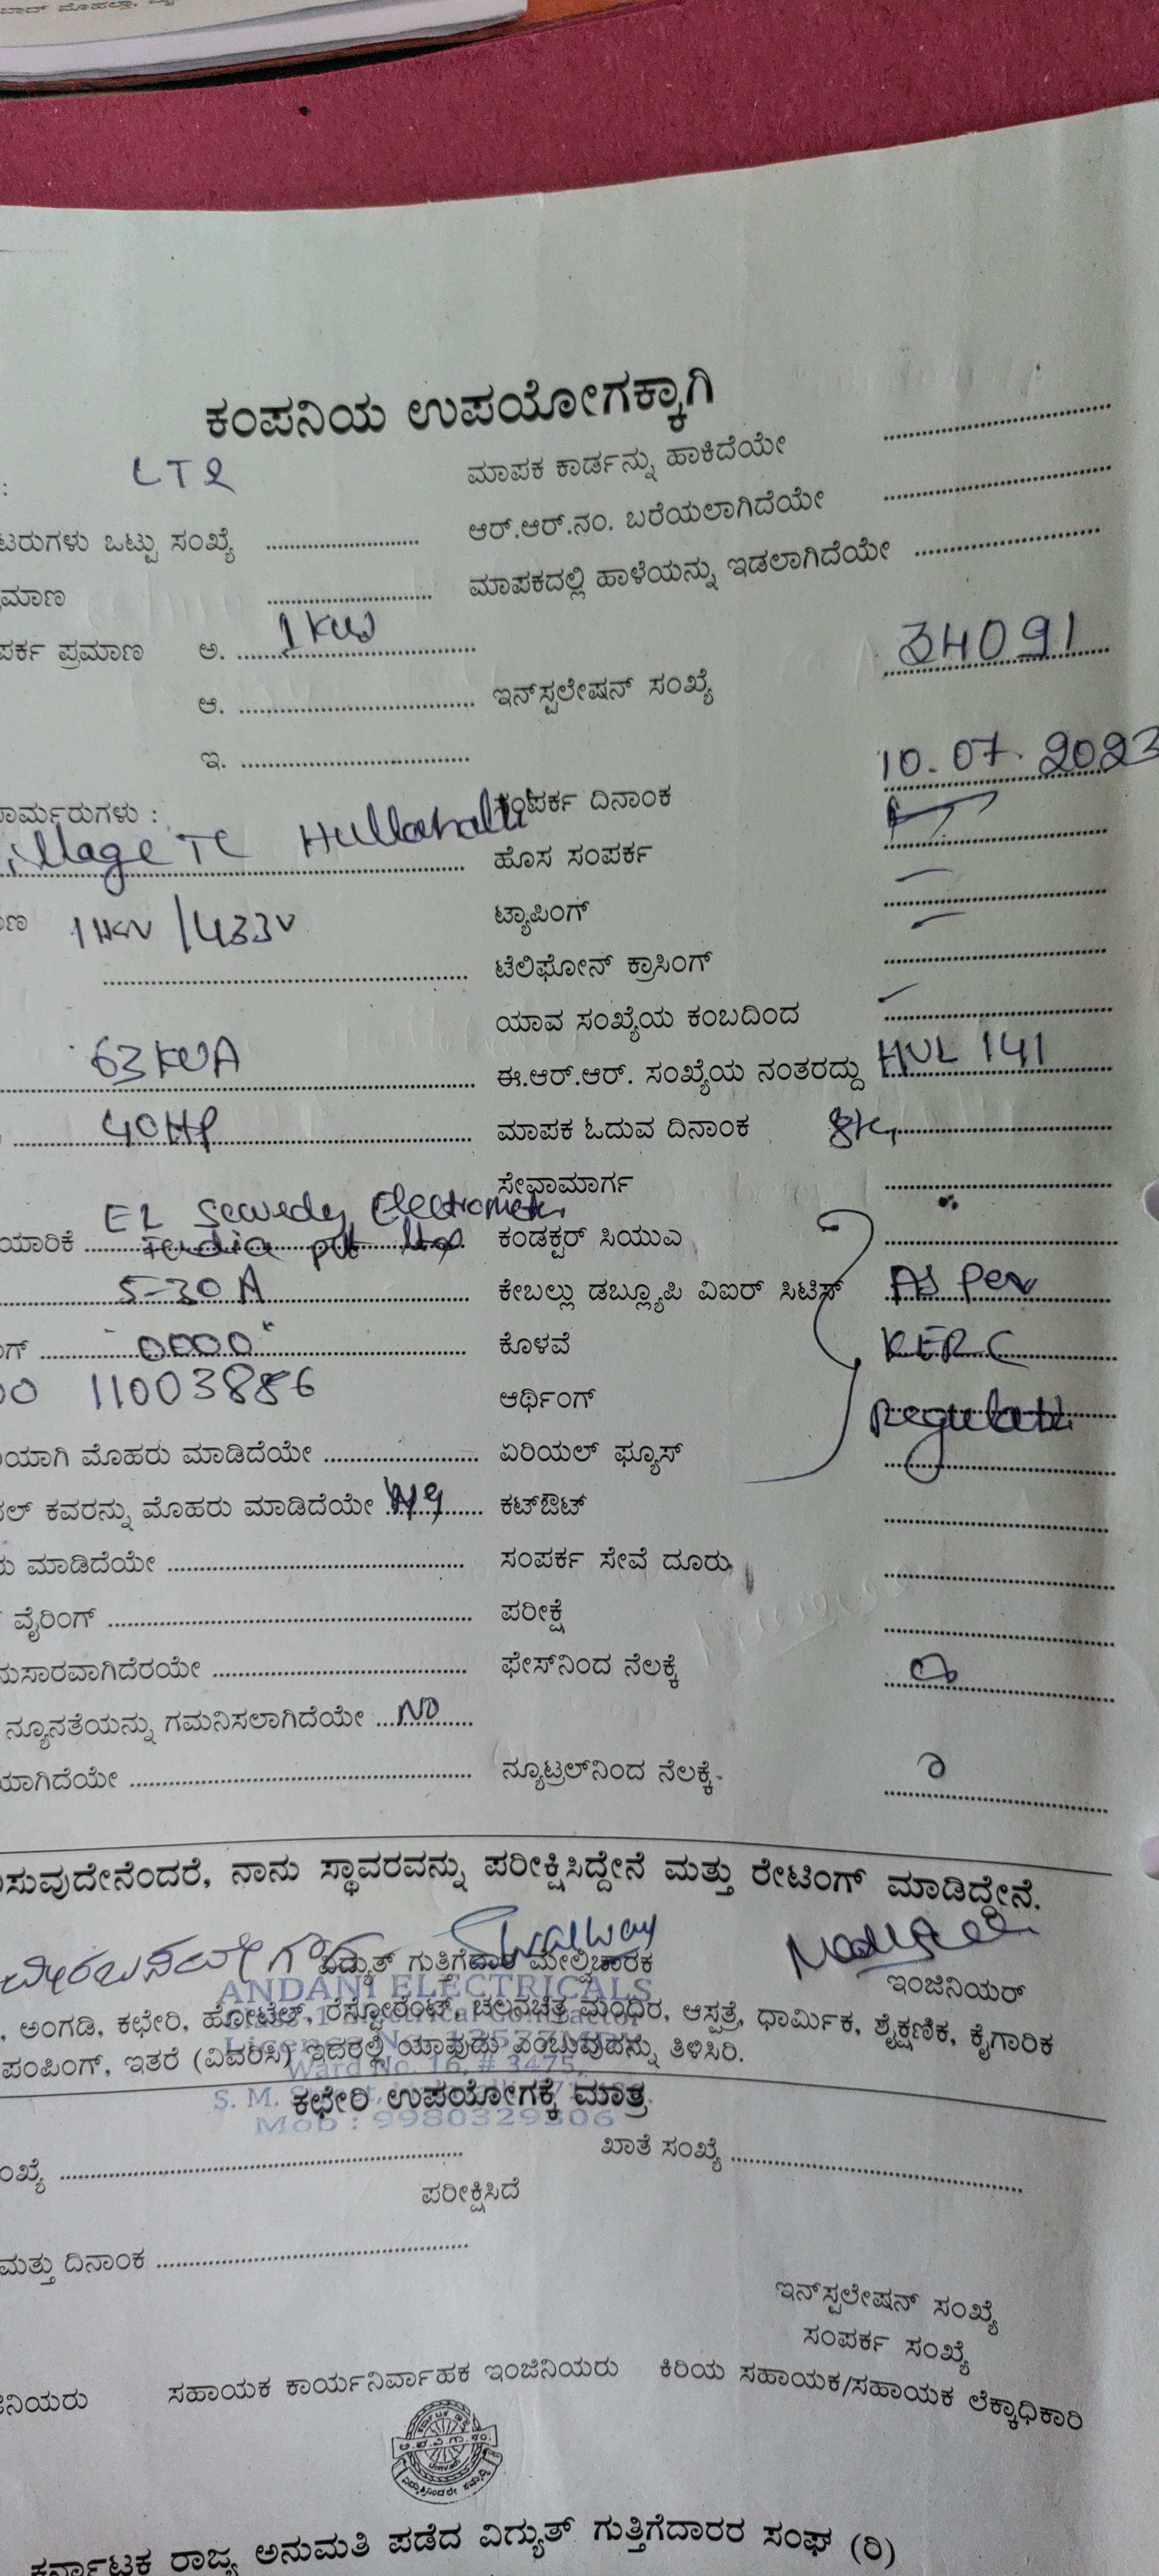 ಕಂಪನಿಯ ಉಪಯೋಗಕ್ಕಾಗಿ
: LT2 ಮಾಪಕ ಕಾರ್ಡನ್ನು ಹಾಕಿದೆಯೇ
ಟರುಗಳು ಒಟ್ಟು ಸಂಖ್ಯೆ ಆರ್.ಆರ್.ನಂ. ಬರೆಯಲಾಗಿದೆಯೇ
ಮಾಣ ಮಾಪಕದಲ್ಲಿ ಹಾಳೆಯನ್ನು ಇಡಲಾಗಿದೆಯೇ
ಪರ್ಕ ಪ್ರಮಾಣ ಅ. 1 KW
ಆ. ಇನ್‌ಸ್ಟಲೇಷನ್ ಸಂಖ್ಯೆ 34091
ಇ.
ಾರ್ಮರುಗಳು : ಸಂಪರ್ಕ ದಿನಾಂಕ 10.07.2023
illage TC Hullahalli ಹೊಸ ಸಂಪರ್ಕ
ಣ 11KV/433V ಟ್ಯಾಪಿಂಗ್
ಟೆಲಿಫೋನ್ ಕ್ರಾಸಿಂಗ್
ಯಾವ ಸಂಖ್ಯೆಯ ಕಂಬದಿಂದ
63 KVA ಈ.ಆರ್.ಆರ್. ಸಂಖ್ಯೆಯ ನಂತರದ್ದು HUL 141
40HP ಮಾಪಕ ಓದುವ ದಿನಾಂಕ
ಸೇವಾಮಾರ್ಗ
ಯಾರಿಕೆ EL Sewedy Electrometer India pvt ltd ಕಂಡಕ್ಟರ್ ಸಿಯುಎ
5-30 A ಕೇಬಲ್ಲು ಡಬ್ಲ್ಯೂಪಿ ವಿಐರ್ ಸಿಟಿಸ್ As Per
ಗ್ "0000" ಕೊಳವೆ KERC
11003886 ಆರ್ಥಿಂಗ್ Regulation
ಯಾಗಿ ಮೊಹರು ಮಾಡಿದೆಯೇ ಏರಿಯಲ್ ಫ್ಯೂಸ್
ಲ್ ಕವರನ್ನು ಮೊಹರು ಮಾಡಿದೆಯೇ ಕಟ್‌ಔಟ್
ು ಮಾಡಿದೆಯೇ ಸಂಪರ್ಕ ಸೇವೆ ದೂರು
ವೈರಿಂಗ್ ಪರೀಕ್ಷೆ
ನುಸಾರವಾಗಿದೆರಯೇ ಫೇಸ್‌ನಿಂದ ನೆಲಕ್ಕೆ
ನ್ಯೂನತೆಯನ್ನು ಗಮನಿಸಲಾಗಿದೆಯೇ NO
ಯಾಗಿದೆಯೇ ನ್ಯೂಟ್ರಲ್‌ನಿಂದ ನೆಲಕ್ಕೆ
ಸುವುದೇನೆಂದರೆ, ನಾನು ಸ್ಥಾವರವನ್ನು ಪರೀಕ್ಷಿಸಿದ್ದೇನೆ ಮತ್ತು ರೇಟಿಂಗ್ ಮಾಡಿದ್ದೇನೆ.
ವಿದ್ಯುತ್ ಗುತ್ತಿಗೆದಾರ ಮೇಲ್ವಿಚಾರಕ
ಇಂಜಿನಿಯರ್
ANDANI ELECTRICALS
, ಅಂಗಡಿ, ಕಛೇರಿ, ಹೋಟೆಲ್, ರೆಸ್ಟೋರೆಂಟ್, ಚಲನಚಿತ್ರ ಮಂದಿರ, ಆಸ್ಪತ್ರೆ, ಧಾರ್ಮಿಕ, ಶೈಕ್ಷಣಿಕ, ಕೈಗಾರಿಕ
Electrical Contractor
ಪಂಪಿಂಗ್, ಇತರೆ (ವಿವರಿಸಿ) ಇದರಲ್ಲಿ ಯಾವುದು ಎಂಬುವುದನ್ನು ತಿಳಿಸಿರಿ.
Ward No. 16, # 3475,
S. M.
ಕಛೇರಿ ಉಪಯೋಗಕ್ಕೆ ಮಾತ್ರ
Mob : 9980329306
ಂಖ್ಯೆ ಖಾತೆ ಸಂಖ್ಯೆ
ಪರೀಕ್ಷಿಸಿದೆ
ಮತ್ತು ದಿನಾಂಕ
ಇನ್‌ಸ್ಟಲೇಷನ್ ಸಂಖ್ಯೆ
ಸಂಪರ್ಕ ಸಂಖ್ಯೆ
ನಿಯರು ಸಹಾಯಕ ಕಾರ್ಯನಿರ್ವಾಹಕ ಇಂಜಿನಿಯರು ಕಿರಿಯ ಸಹಾಯಕ/ಸಹಾಯಕ ಲೆಕ್ಕಾಧಿಕಾರಿ
ಕರ್ನಾಟಕ ರಾಜ್ಯ ಅನುಮತಿ ಪಡೆದ ವಿದ್ಯುತ್ ಗುತ್ತಿಗೆದಾರರ ಸಂಘ (ರಿ)